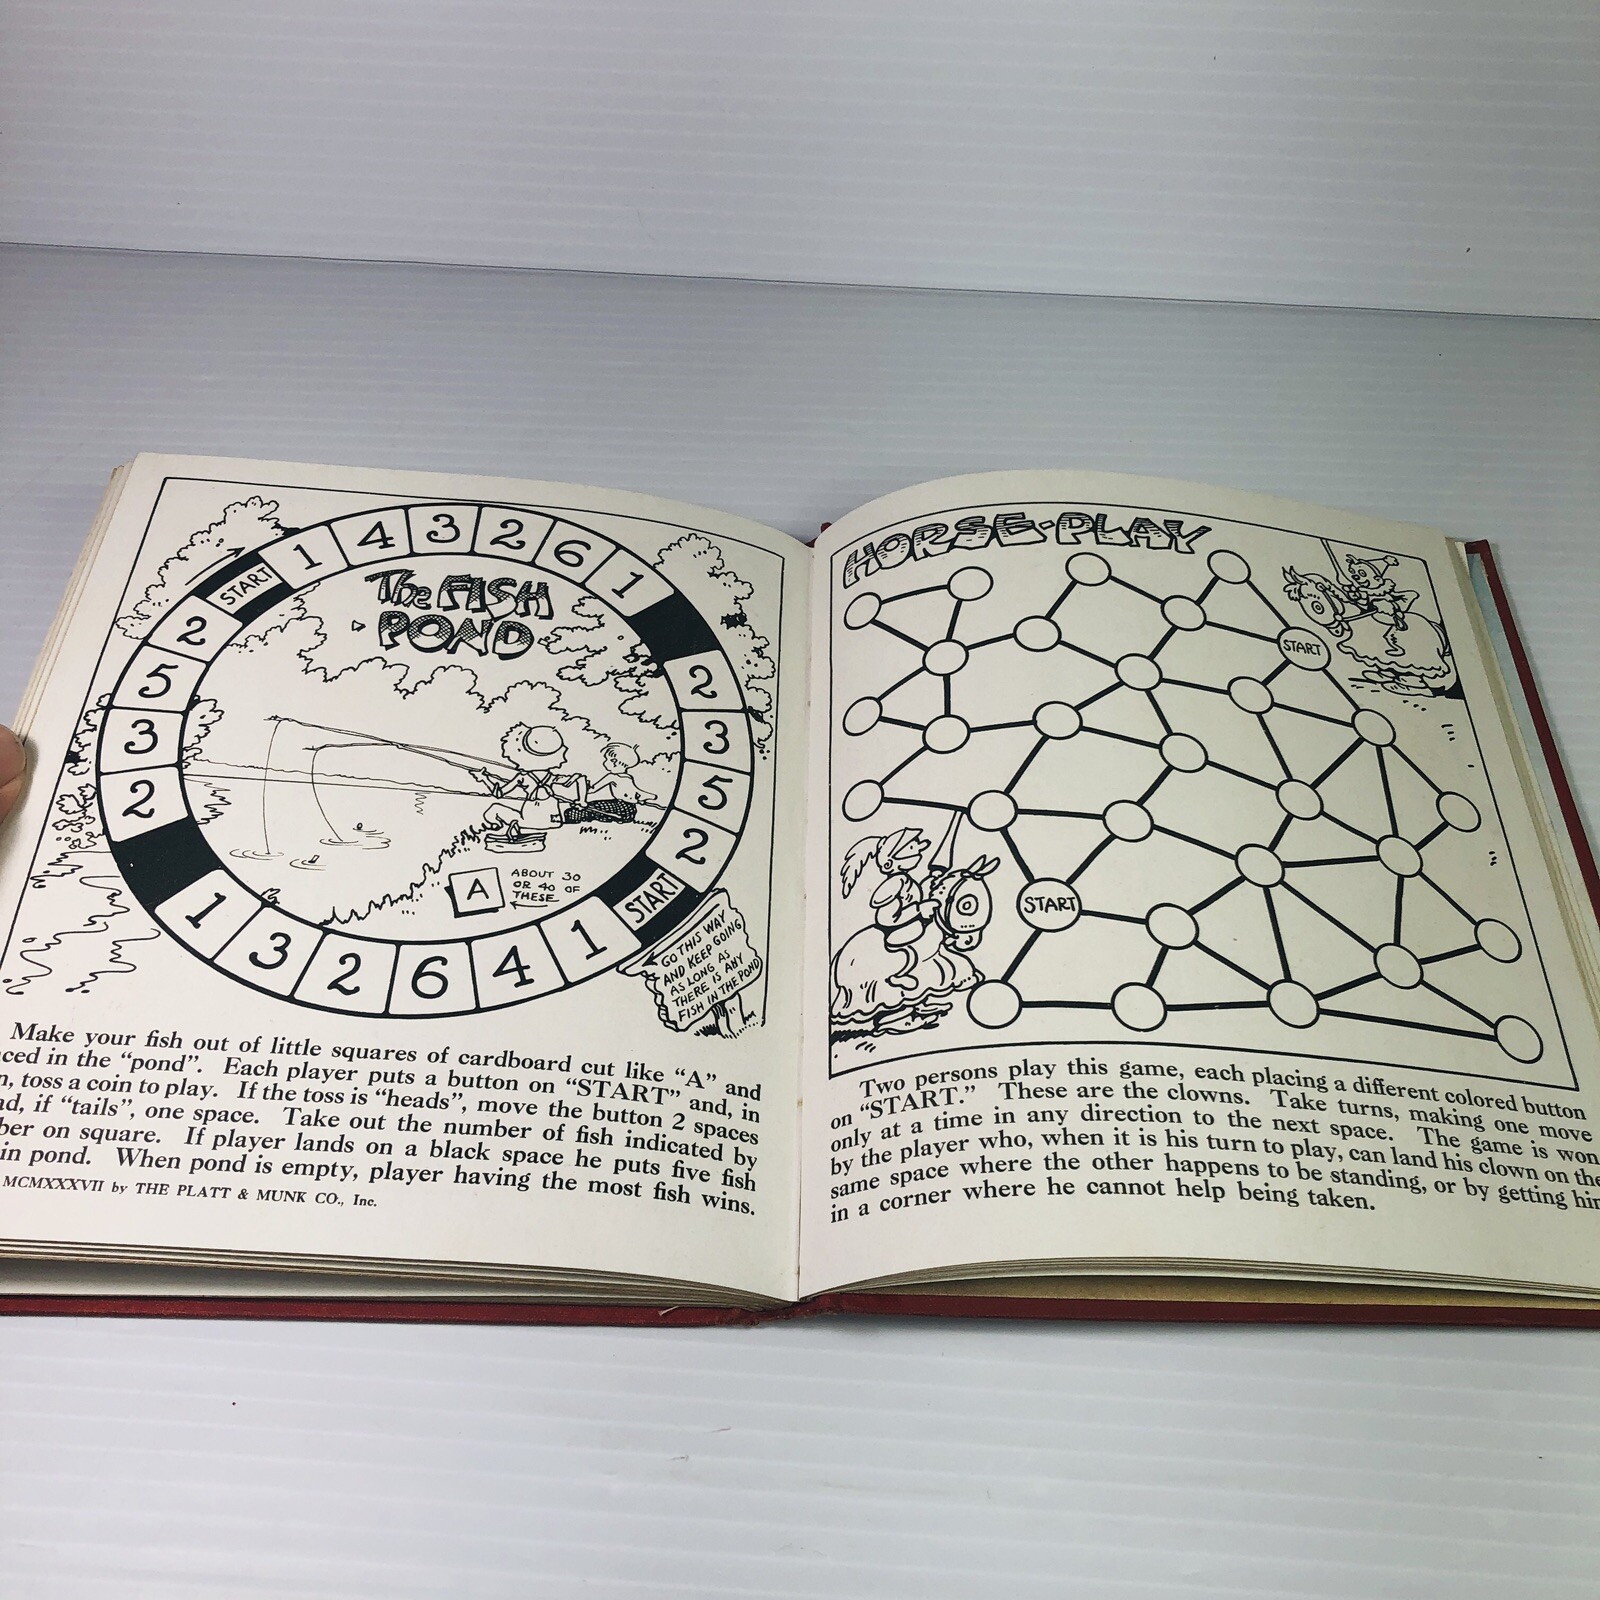 The FISH
POND
START
1
4
3
2
6
1
2
3
5
2
START
1
4
6
2
3
1
2
3
5
2
A
ABOUT 30
OR 40 OF
THESE
GO THIS WAY
AND KEEP GOING
AS LONG AS
THERE IS ANY
FISH IN THE POND
Make your fish out of little squares of cardboard cut like "A" and
in the "pond". Each player puts a button on "START" and, in
toss a coin to play. If the toss is "heads", move the button 2 spaces
if "tails", one space. Take out the number of fish indicated by
on square. If player lands on a black space he puts five fish
in pond. When pond is empty, player having the most fish wins.
MCMXXXVII by THE PLATT & MUNK CO., Inc.
HORSE-PLAY
START
START
Two persons play this game, each placing a different colored button
on "START." These are the clowns. Take turns, making one move
only at a time in any direction to the next space. The game is won
by the player who, when it is his turn to play, can land his clown on the
same space where the other happens to be standing, or by getting him
in a corner where he cannot help being taken.